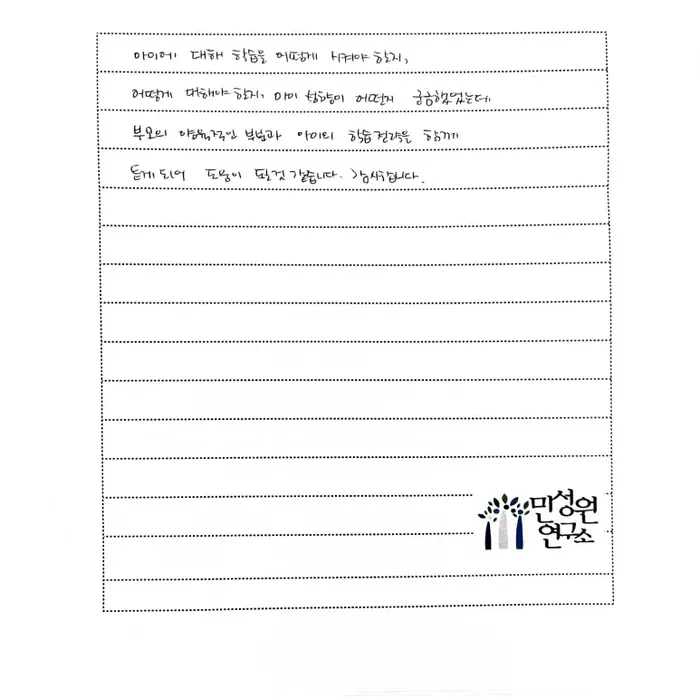 아이에 대해 학습을 어떻게 시켜야 할지,
어떻게 대해야 할지, 아이 성향이 어떤지 궁금했었는데
부모의 양육적인 부분과 아이의 학습전략을 함께
듣게 되어 도움이 될것 같습니다. 감사합니다.
민성원
연구소